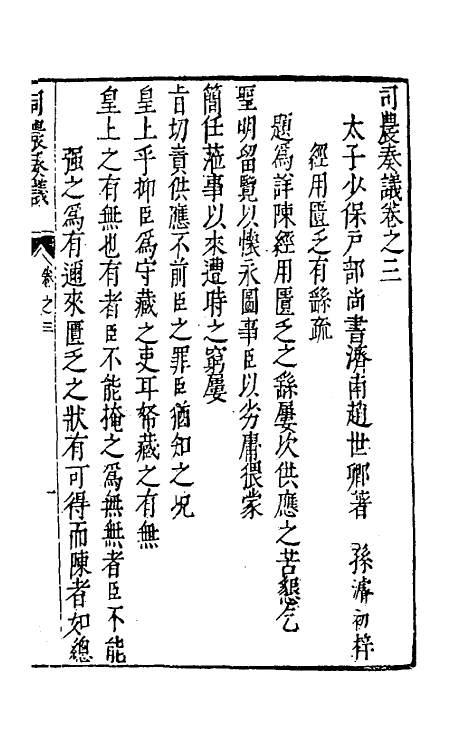 司農奏議卷之三
太子少保戶部尚書濟南趙世卿著　孫濬初梓
經用匱乏有繇疏
題爲詳陳經用匱乏之繇屢次供應之苦懇乞
聖明留覽以惕永圖事臣以劣庸猥蒙
簡任蒞事以來遭時之窮屢
旨切責供應不前臣之罪臣猶知之况
皇上乎抑臣爲守藏之吏耳帑藏之有無
皇上之有無也有者臣不能掩之爲無無者臣不能
强之爲有邇來匱乏之狀有可得而陳者如總
司農奏議
卷之三
一